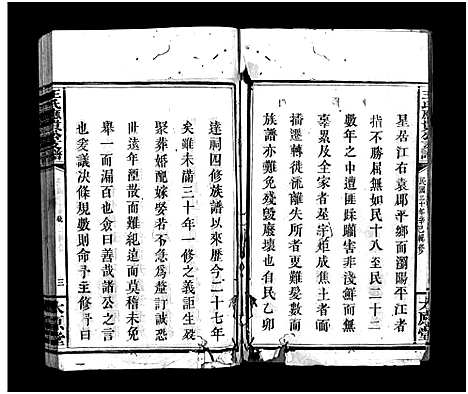 星居江右袁郡平鄉而瀏陽平江者
指不勝屈無如民十八至民二十二
數年之中遭匪蹂躪害非淺鮮而無
辜累及全家者屋宇炬成焦土者而
播遷轉徙流離失所者更難晏數而
族譜亦難免殘毀廢壞也自民乙卯
達祠四修族譜以來歷今二十七年
矣雖未滿三十年一修之義詎生歿
聚葬婚配嫁娶者不急為釐訂誠恐
世遠年湮散而難紀遠而莫稽未免
舉一而漏百僉曰善哉諸公之言
也爰議決條規數則命予主修予曰
三
太原堂